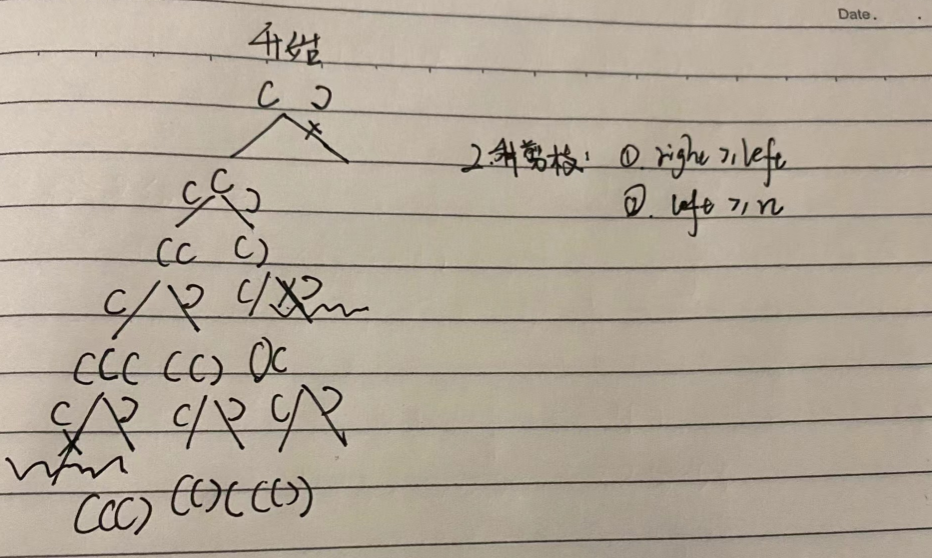 Date.
开始
( )
2. 剪枝: ① right ≥ left
② left ≥ n
( ( )
(( ()
( ) ( )
((( (() ()(
( ) ( ) ( )
((() (()( (())